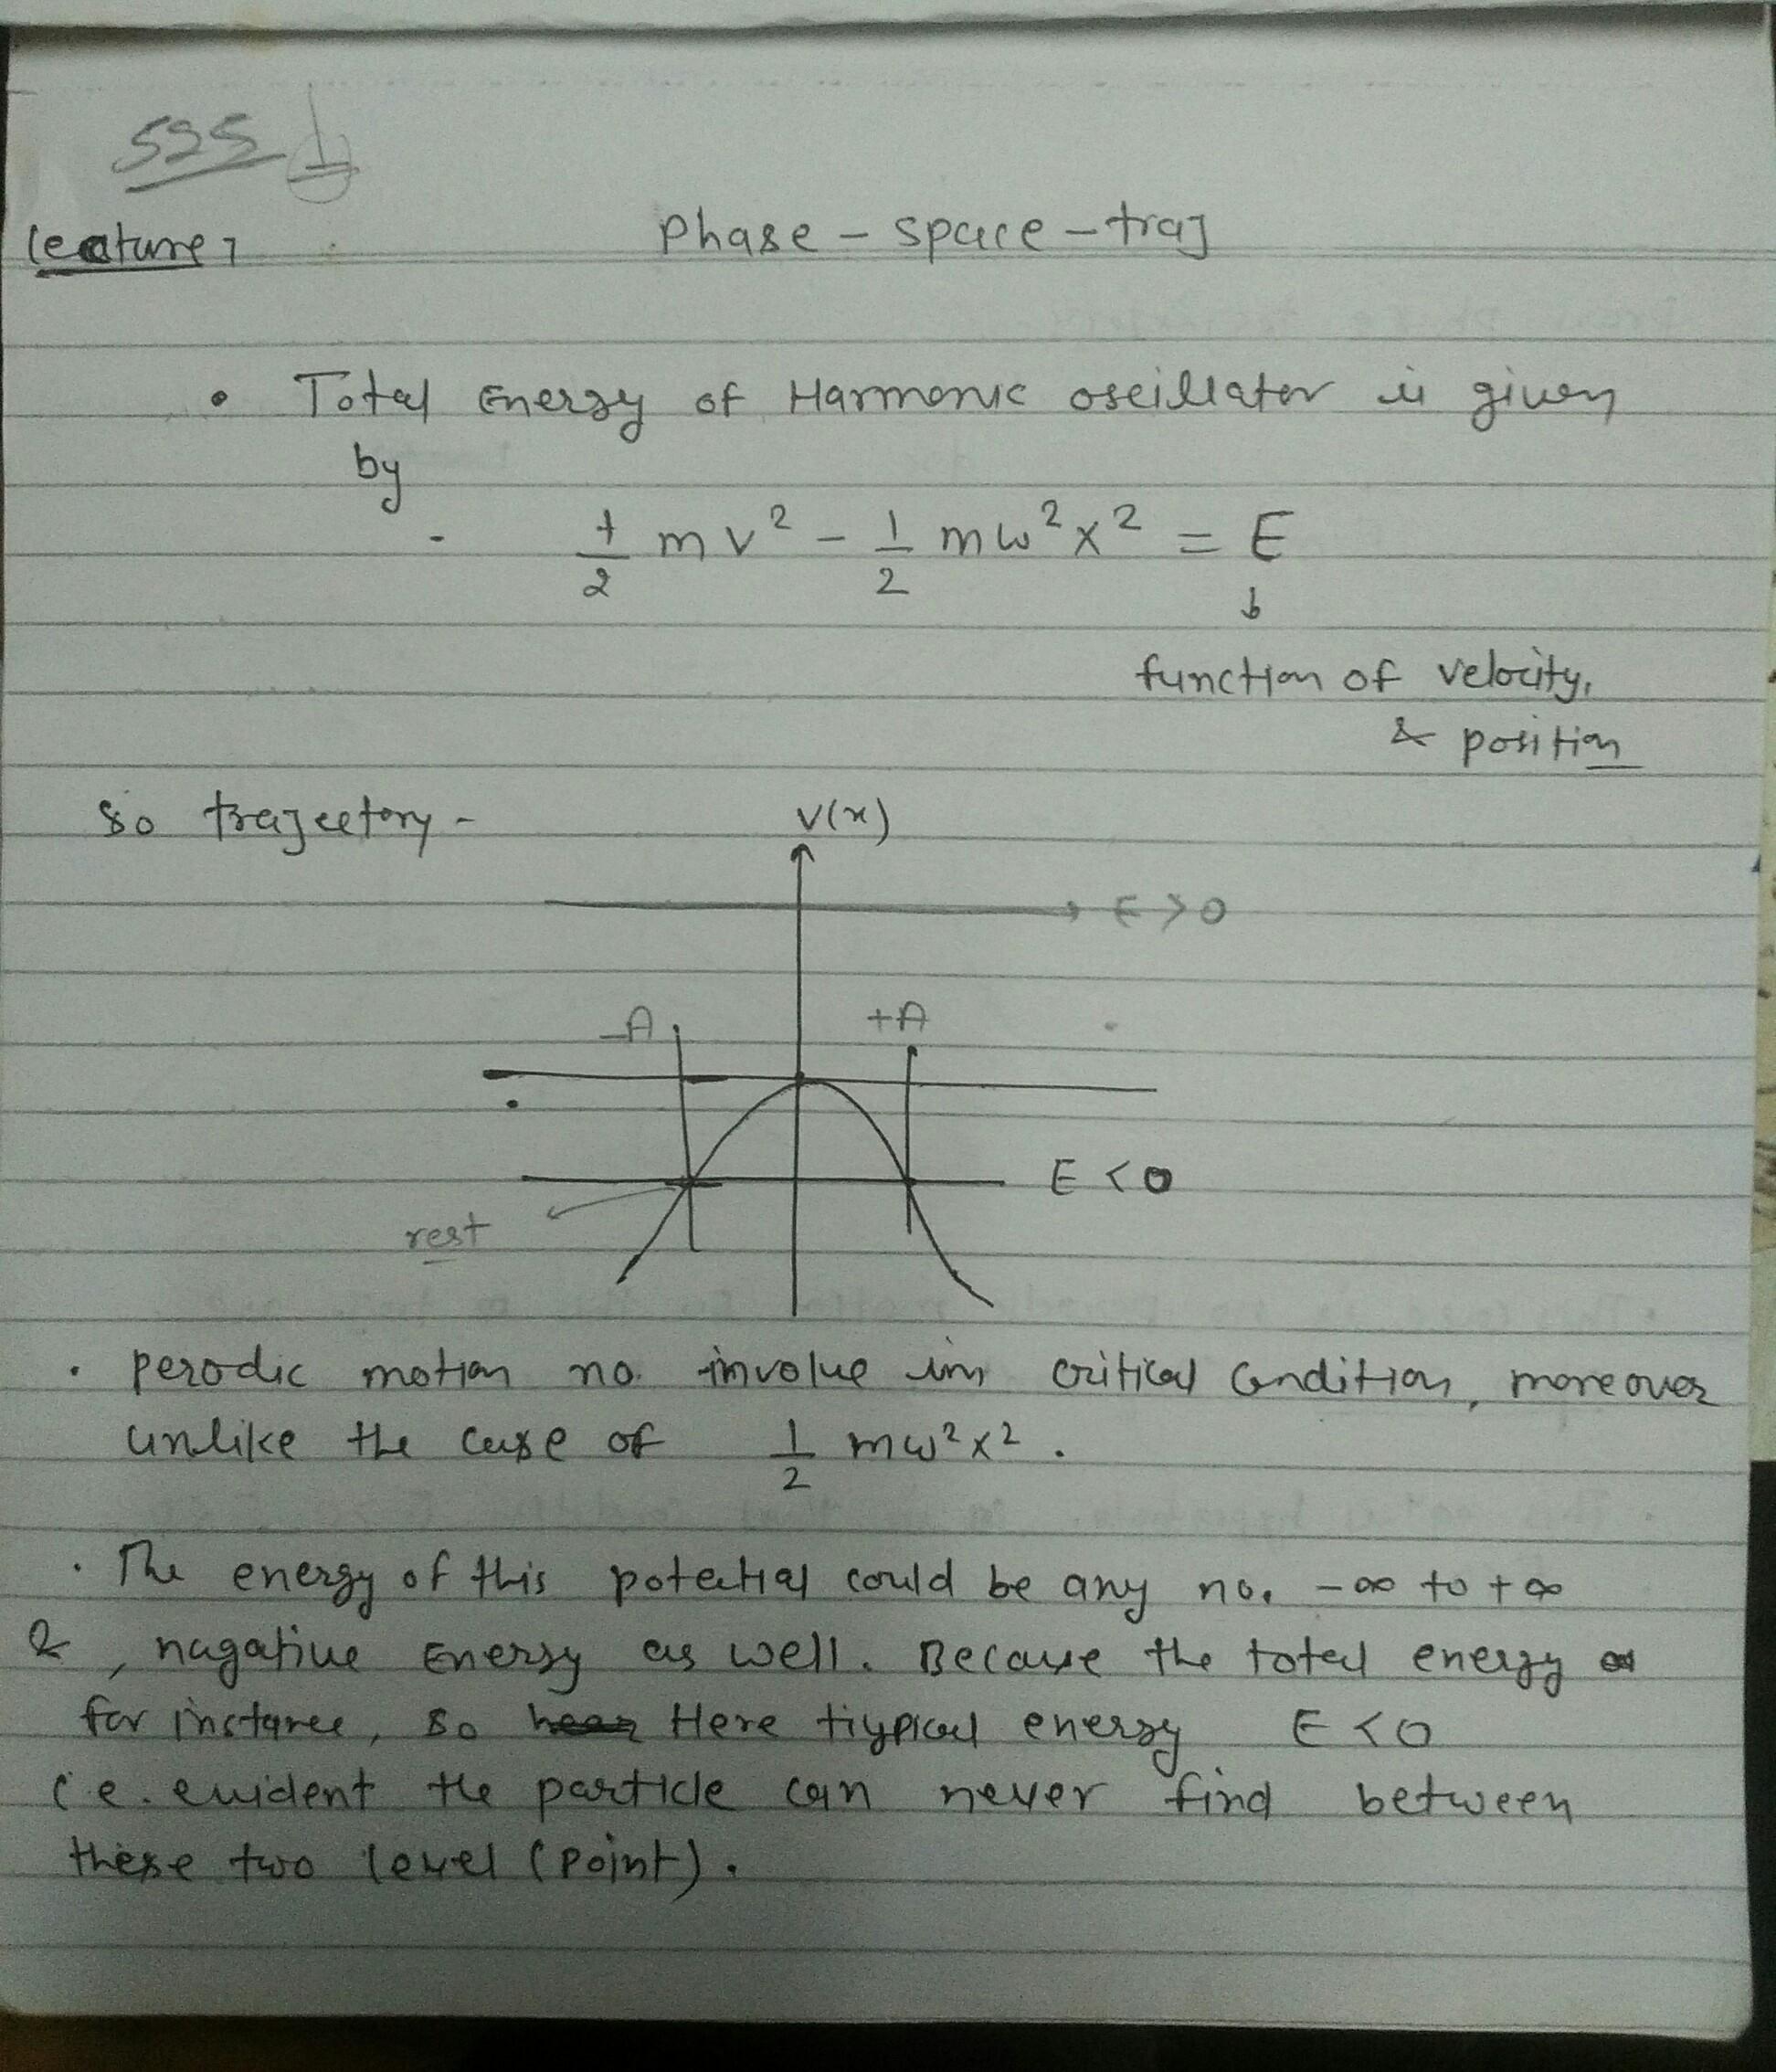 525 1
Lecture 7
Phase - space - traj
• Total Energy of Harmonic oscillator is given
by
- 1/2 mv² - 1/2 mω²x² = E
↓
function of velocity,
& position
so trajectory -
V(x)
→ E > 0
-A
+A
E < 0
rest
• perodic motion no. involve in critical condition, moreover
unlike the case of 1/2 mω²x² .
• The energy of this potetial could be any no. -∞ to +∞
& , nagative Energy as well. Because the total energy
for instance, so Here tiypical energy E < 0
i.e. evident the particle can never find between
these two level (point).